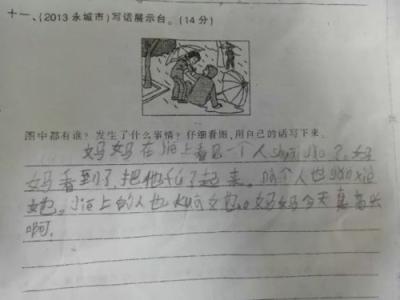 十一、(2013 永城市)写话展示台。(14分)
图中都有谁?发生了什么事情?仔细看图,用自己的话写下来。
妈妈在 上看见一个人 了,妈
妈看到了,把他 了起来。 个人也
她。 上的人也 她。妈妈今天真高兴
啊。